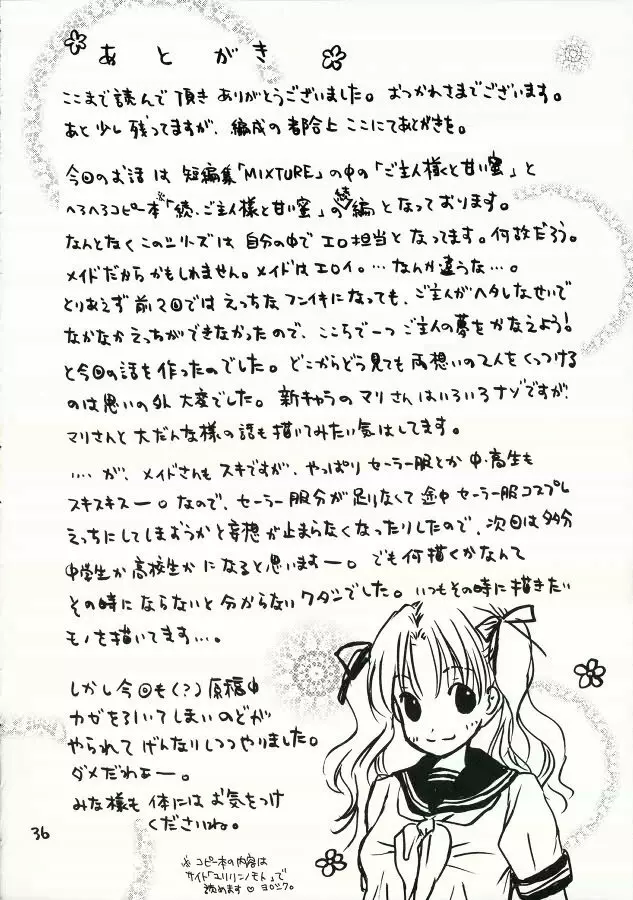 あとがき
ここまで読んで頂きありがとうございました。おつかれさまでございます。
あと少し残ってますが、編成の都合上ここにてあとがきを。
今回のお話は 短編集「MIXTURE」の中の「ご主人様と甘い蜜」と
へろへろコピー本※「続、ご主人様と甘い蜜」の続編となっております。
なんとなくこのシリーズは自分の中でエロ担当となってます。何故だろう。
メイドだからかもしれません。メイドはエロイ。…なんか違うな…。
とりあえず前2回ではえっちなフンイキになっても、ご主人がヘタレなせいで
なかなかえっちができなかったので、ここらで一つご主人の夢をかなえよう!
と今回の話を作ったのでした。どこからどう見ても両想いの2人をくっつける
のは思いの外 大変でした。新キャラのマリさんはいろいろナゾですが、
マリさんと大だんな様の話も描いてみたい気はしてます。
….が、メイドさんもスキですが、やっぱりセーラー服とか中・高生も
スキスキスー。なので、セーラー服分が足りなくて途中セーラー服コスプレ
えっちにしてしまおうかと妄想が止まらなくなったりしたので、次回は多分
中学生か高校生かになると思いますー。でも何描くかなんて
その時にならないと分からないワタシでした。いつもその時に描きたい
モノを描いてます…。
しかし今回も(?)原稿中
カゼを引いてしまいのどが
やられてげんなりしつつやりました。
ダメだわぁー。
みな様も体にはお気をつけ
くださいね。
※コピー本の内容は
サイト「ユリリンノモト」で
読めます♡ヨロシク。
36